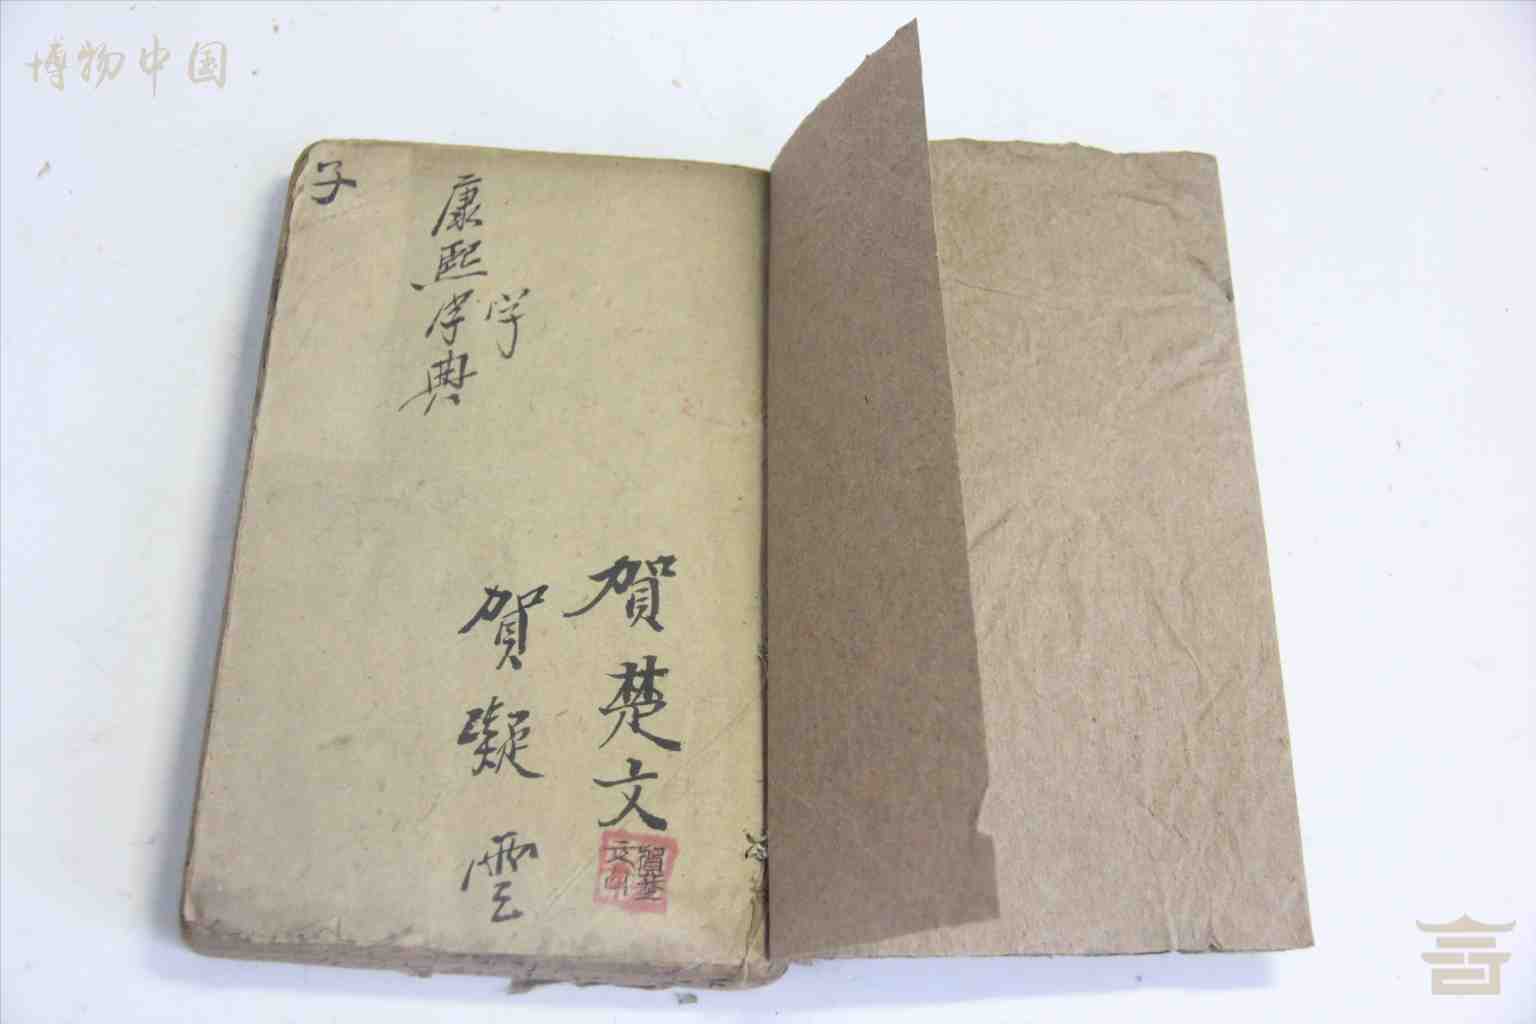 博物中国
子
康熙字典
学
賀楚文
賀凝雲
賀楚文印